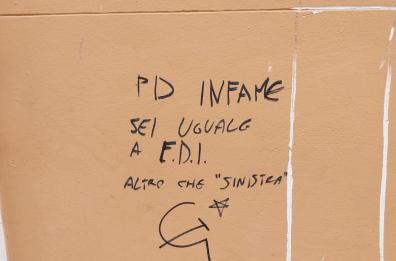 PD INFAME
SEI UGUALE
A F.D.I.
ALTRO CHE "SINISTRA"